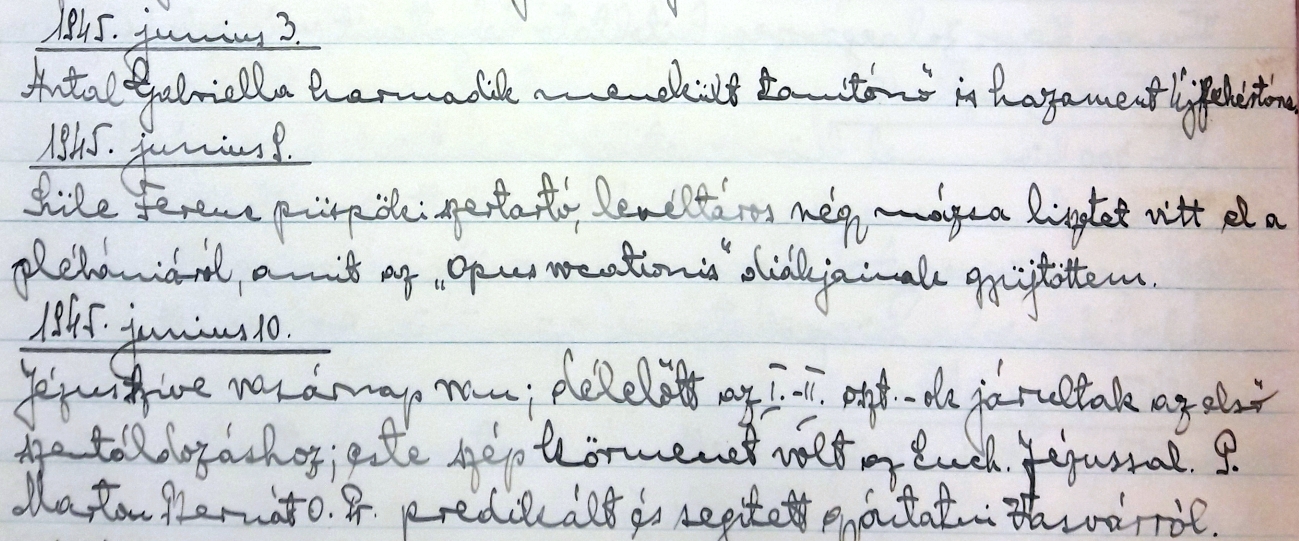 1945. junius 3.
Antal Gabriella harmadik menekült tanítónő is hazament Újfehértóra.
1945. junius 9.
Szüle Ferenc püspöki szertartó, levéltáros négy mázsa lisztet vitt el a
plébániáról, amit az „Opus vocationis" diákjainak gyűjtöttem.
1945. junius 10.
Jézus szíve vasárnap van; délelőtt az I.-II. oszt.-ok járultak az első
szentáldozáshoz; este szép körmenet volt az Euch. Jézussal. P.
Marton Bernát O. Pr. predikált és segített gyóntatni Vasvárról.